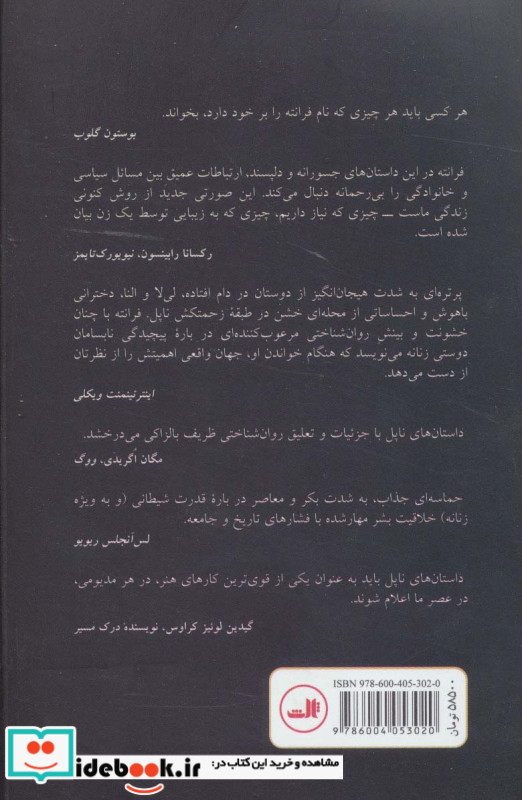 هر کسی باید هر چیزی که نام فرانته را بر خود دارد، بخواند.
بوستون گلوب
فرانته در این داستان‌های جسورانه و دلپسند، ارتباطات عمیق بین مسائل سیاسی
و خانوادگی را بی‌رحمانه دنبال می‌کند. این صورتی جدید از روش کنونی
زندگی ماست ــ چیزی که نیاز داریم، چیزی که به زیبایی توسط یک زن بیان
شده است.
رکسانا رابینسون، نیویورک‌تایمز
پرتره‌ای به شدت هیجان‌انگیز از دوستان در دام افتاده، لی‌لا و النا، دخترانی
باهوش و احساساتی از محله‌ای خشن در طبقهٔ زحمتکش ناپل. فرانته با چنان
خشونت و بینش روان‌شناختی مرعوب‌کننده‌ای در بارهٔ پیچیدگی نابسامان
دوستی زنانه می‌نویسد که هنگام خواندن او، جهان واقعی اهمیتش را از نظرتان
از دست می‌دهد.
اینترتینمنت ویکلی
داستان‌های ناپل با جزئیات و تعلیق روان‌شناختی ظریف بالزاکی می‌درخشد.
مگان اُگریدی، ووگ
حماسه‌ای جذاب، به شدت بکر و معاصر در بارهٔ قدرت شیطانی (و به ویژه
زنانه) خلاقیت بشر مهارشده با فشارهای تاریخ و جامعه.
لس‌آنجلس ریویو
داستان‌های ناپل باید به عنوان یکی از قوی‌ترین کارهای هنر، در هر مدیومی،
در عصر ما اعلام شوند.
گیدین لوئیز کراوس، نویسندهٔ درک مسیر
ISBN 978-600-405-302-0
9 786004 053020
۵۸۵۰۰ تومان
ثالث
مشاهده و خرید این کتاب در:
idebook.ir